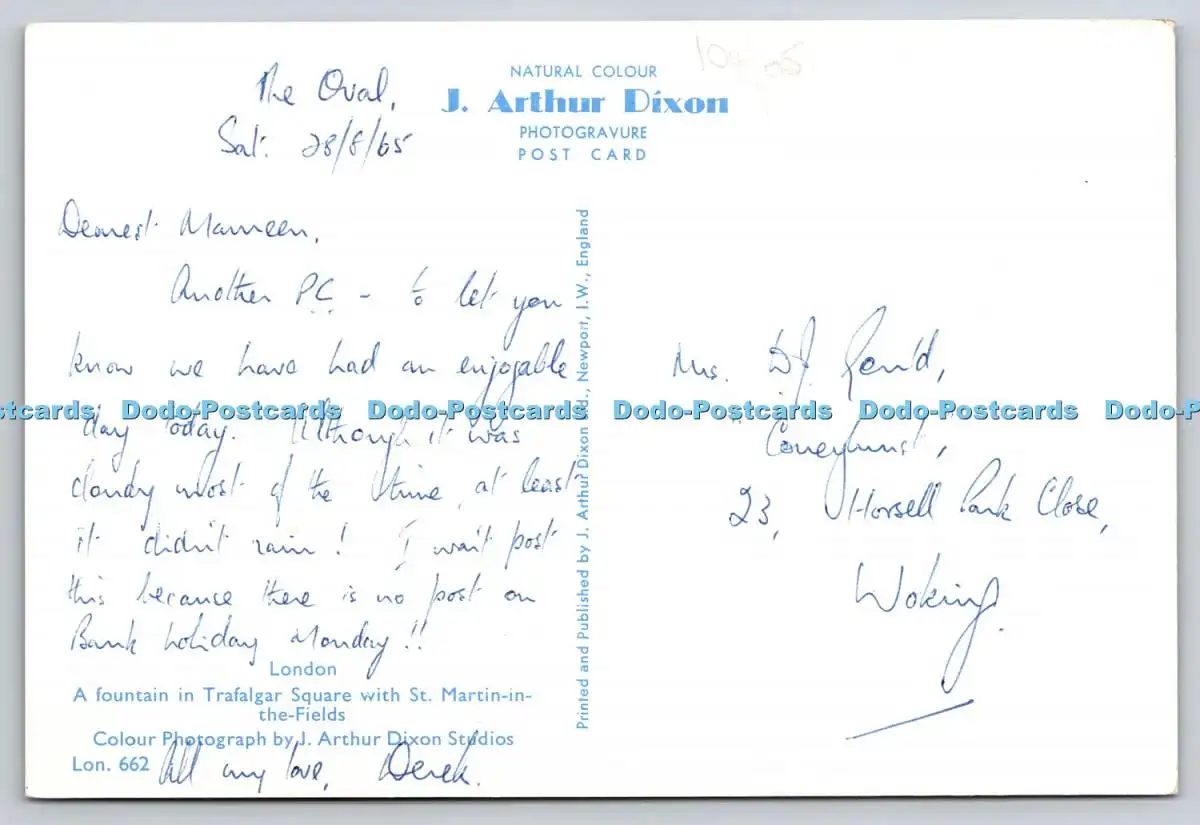 The Oval,
Sat. 28/8/65
NATURAL COLOUR
J. Arthur Dixon
PHOTOGRAVURE
POST CARD
Dearest Maureen,
Another PC - to let you
know we have had an enjoyable
day today. Although it was
cloudy most of the time, at least
it didn't rain! I won't post
this because there is no post on
Bank holiday Monday!!
London
A fountain in Trafalgar Square with St. Martin-in-
the-Fields
Colour Photograph by J. Arthur Dixon Studios
Lon. 662
All my love, Derek.
Printed and Published by J. Arthur Dixon Ltd., Newport, I.W., England
Mrs. D.J.
"Coneyhurst,
23, Horsell Park Close,
Woking.
Dodo-Postcards Dodo-Postcards Dodo-Postcards Dodo-Postcards